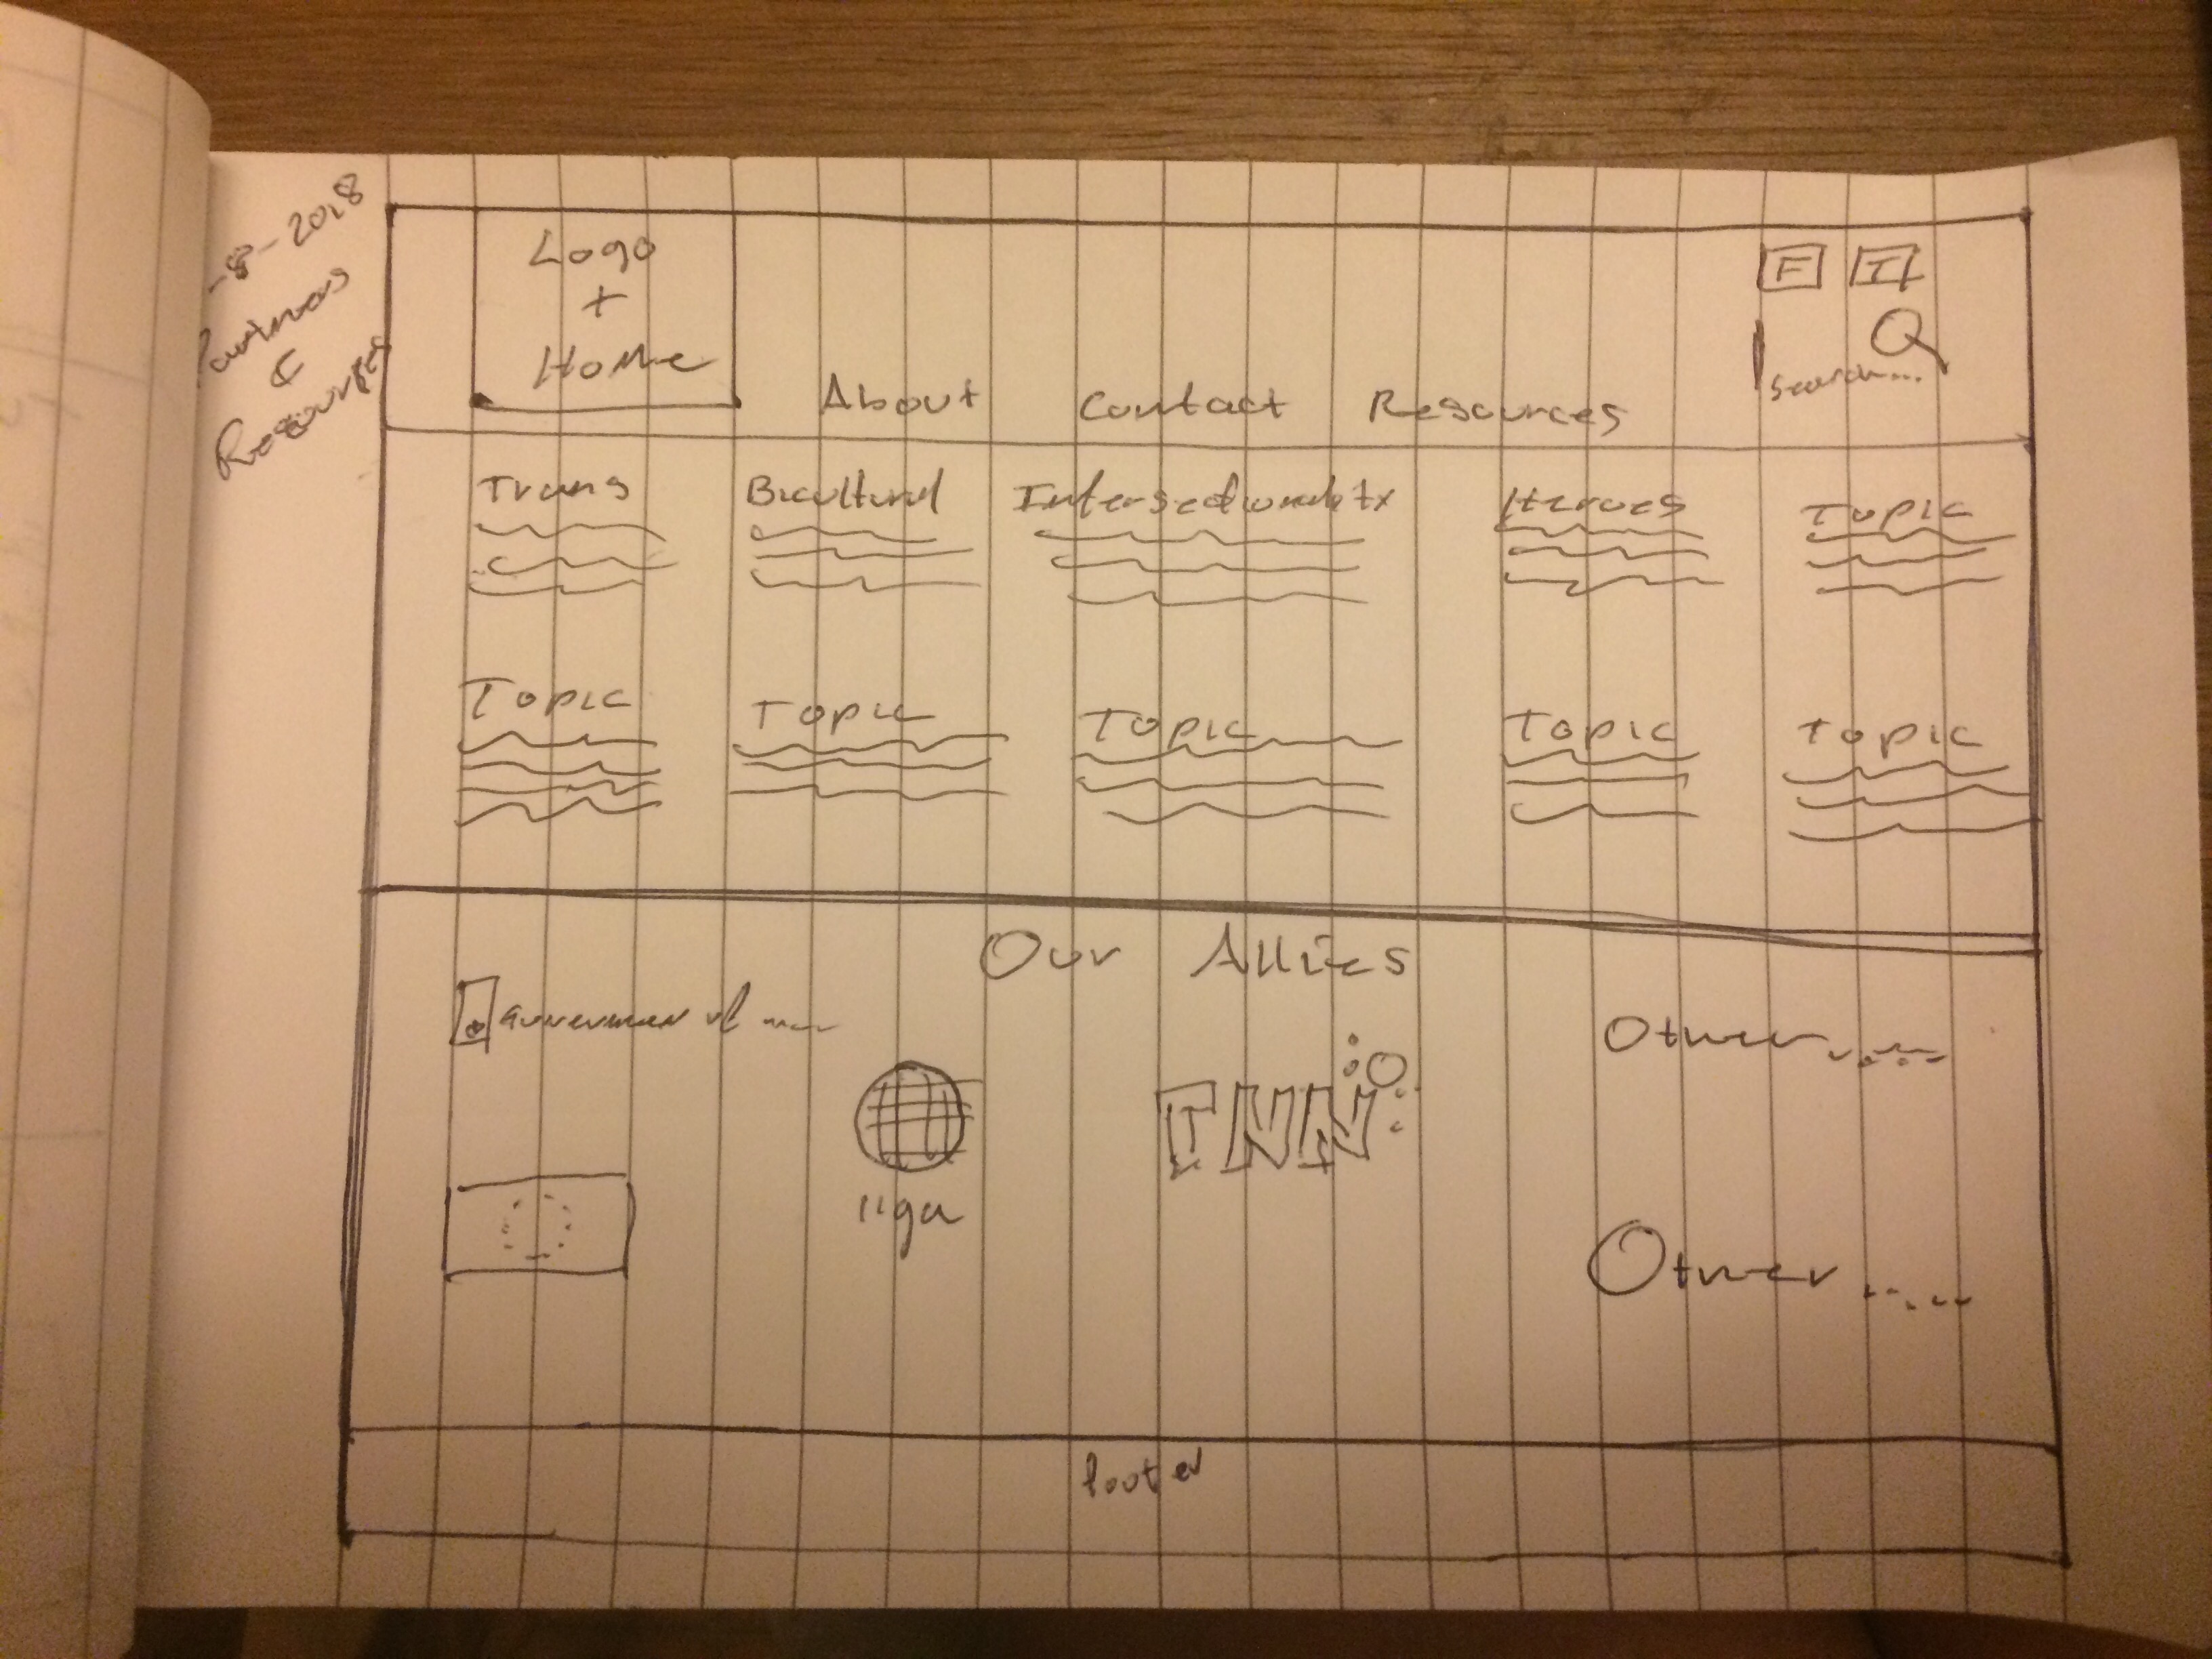 -8-2018
&
Resources
Logo
+
Home
F I
search...
About Contact Resources
Trans Bicultural Intersectionality Heroes Topic
Topic Topic Topic Topic Topic
Our Allies
Other
iiga
TNN
Other .....
footer